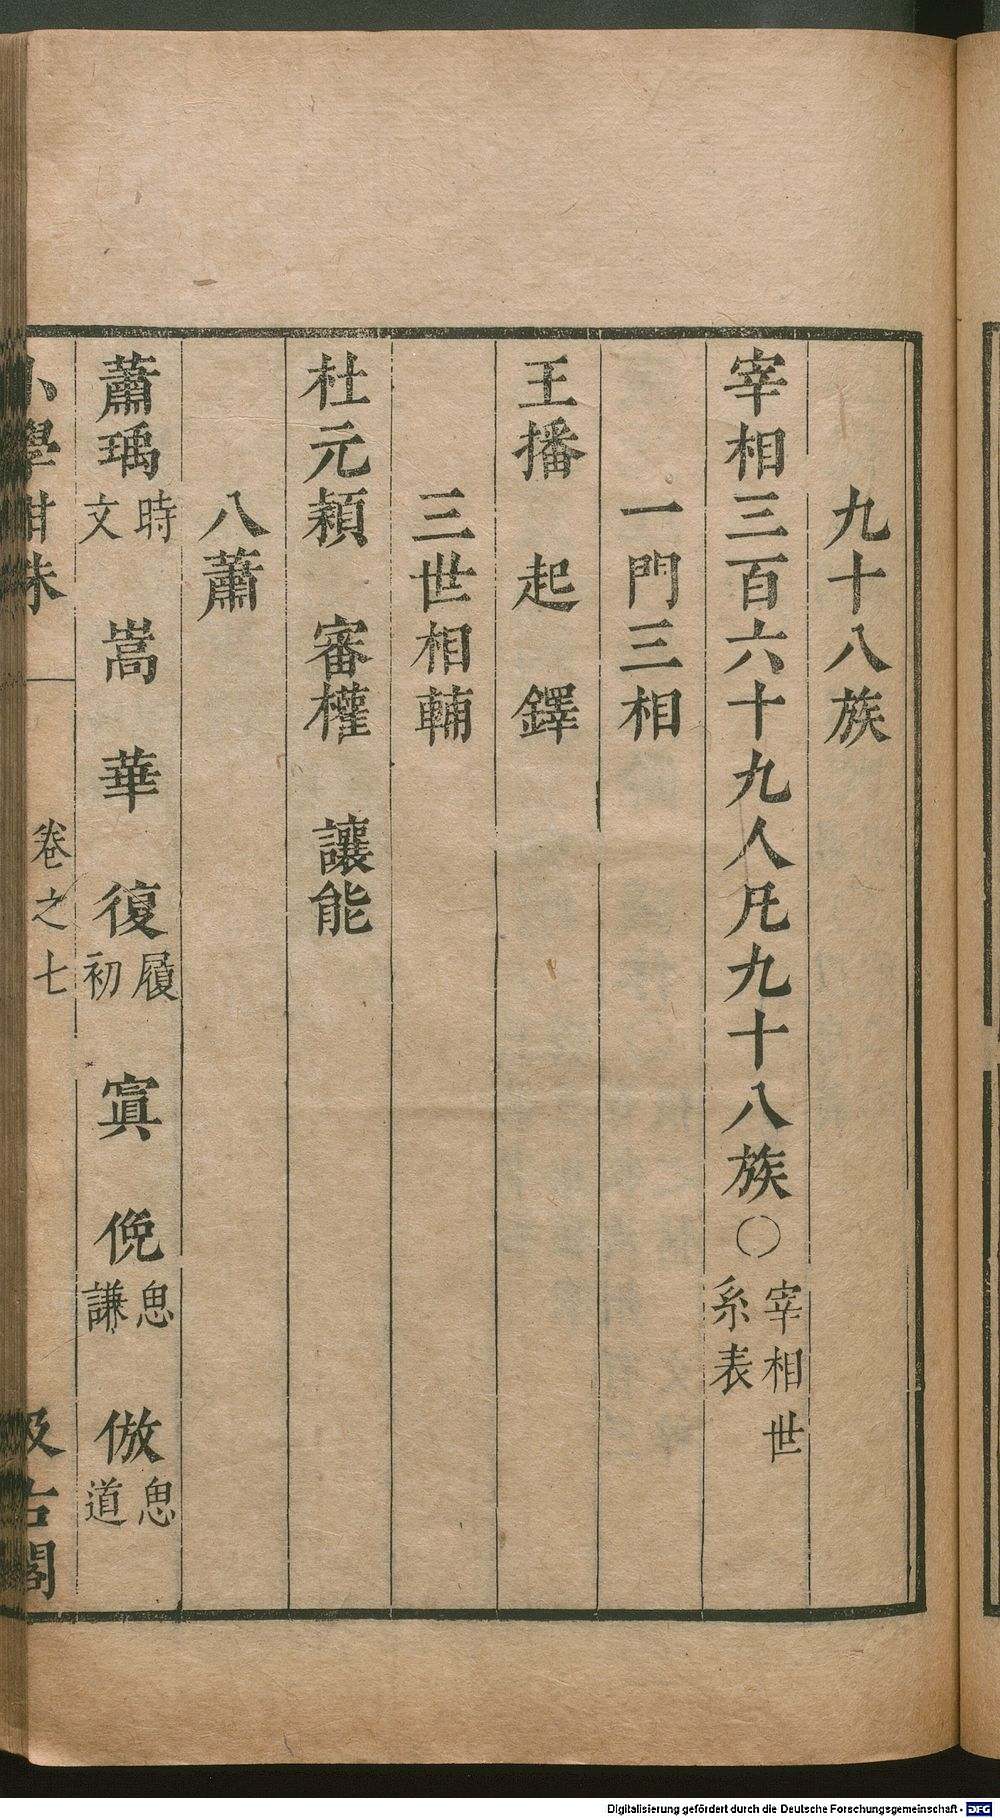 九十八族
宰相三百六十九人凡九十八族○宰相世系表
一門三相
王播 起 鐸
三世相輔
杜元穎 審權 讓能
八蕭
蕭瑀時文 嵩 華 復履初 寘 俛思謙 倣思道
小學紺珠 卷之七 汲古閣
Digitalisierung gefördert durch die Deutsche Forschungsgemeinschaft - DFG